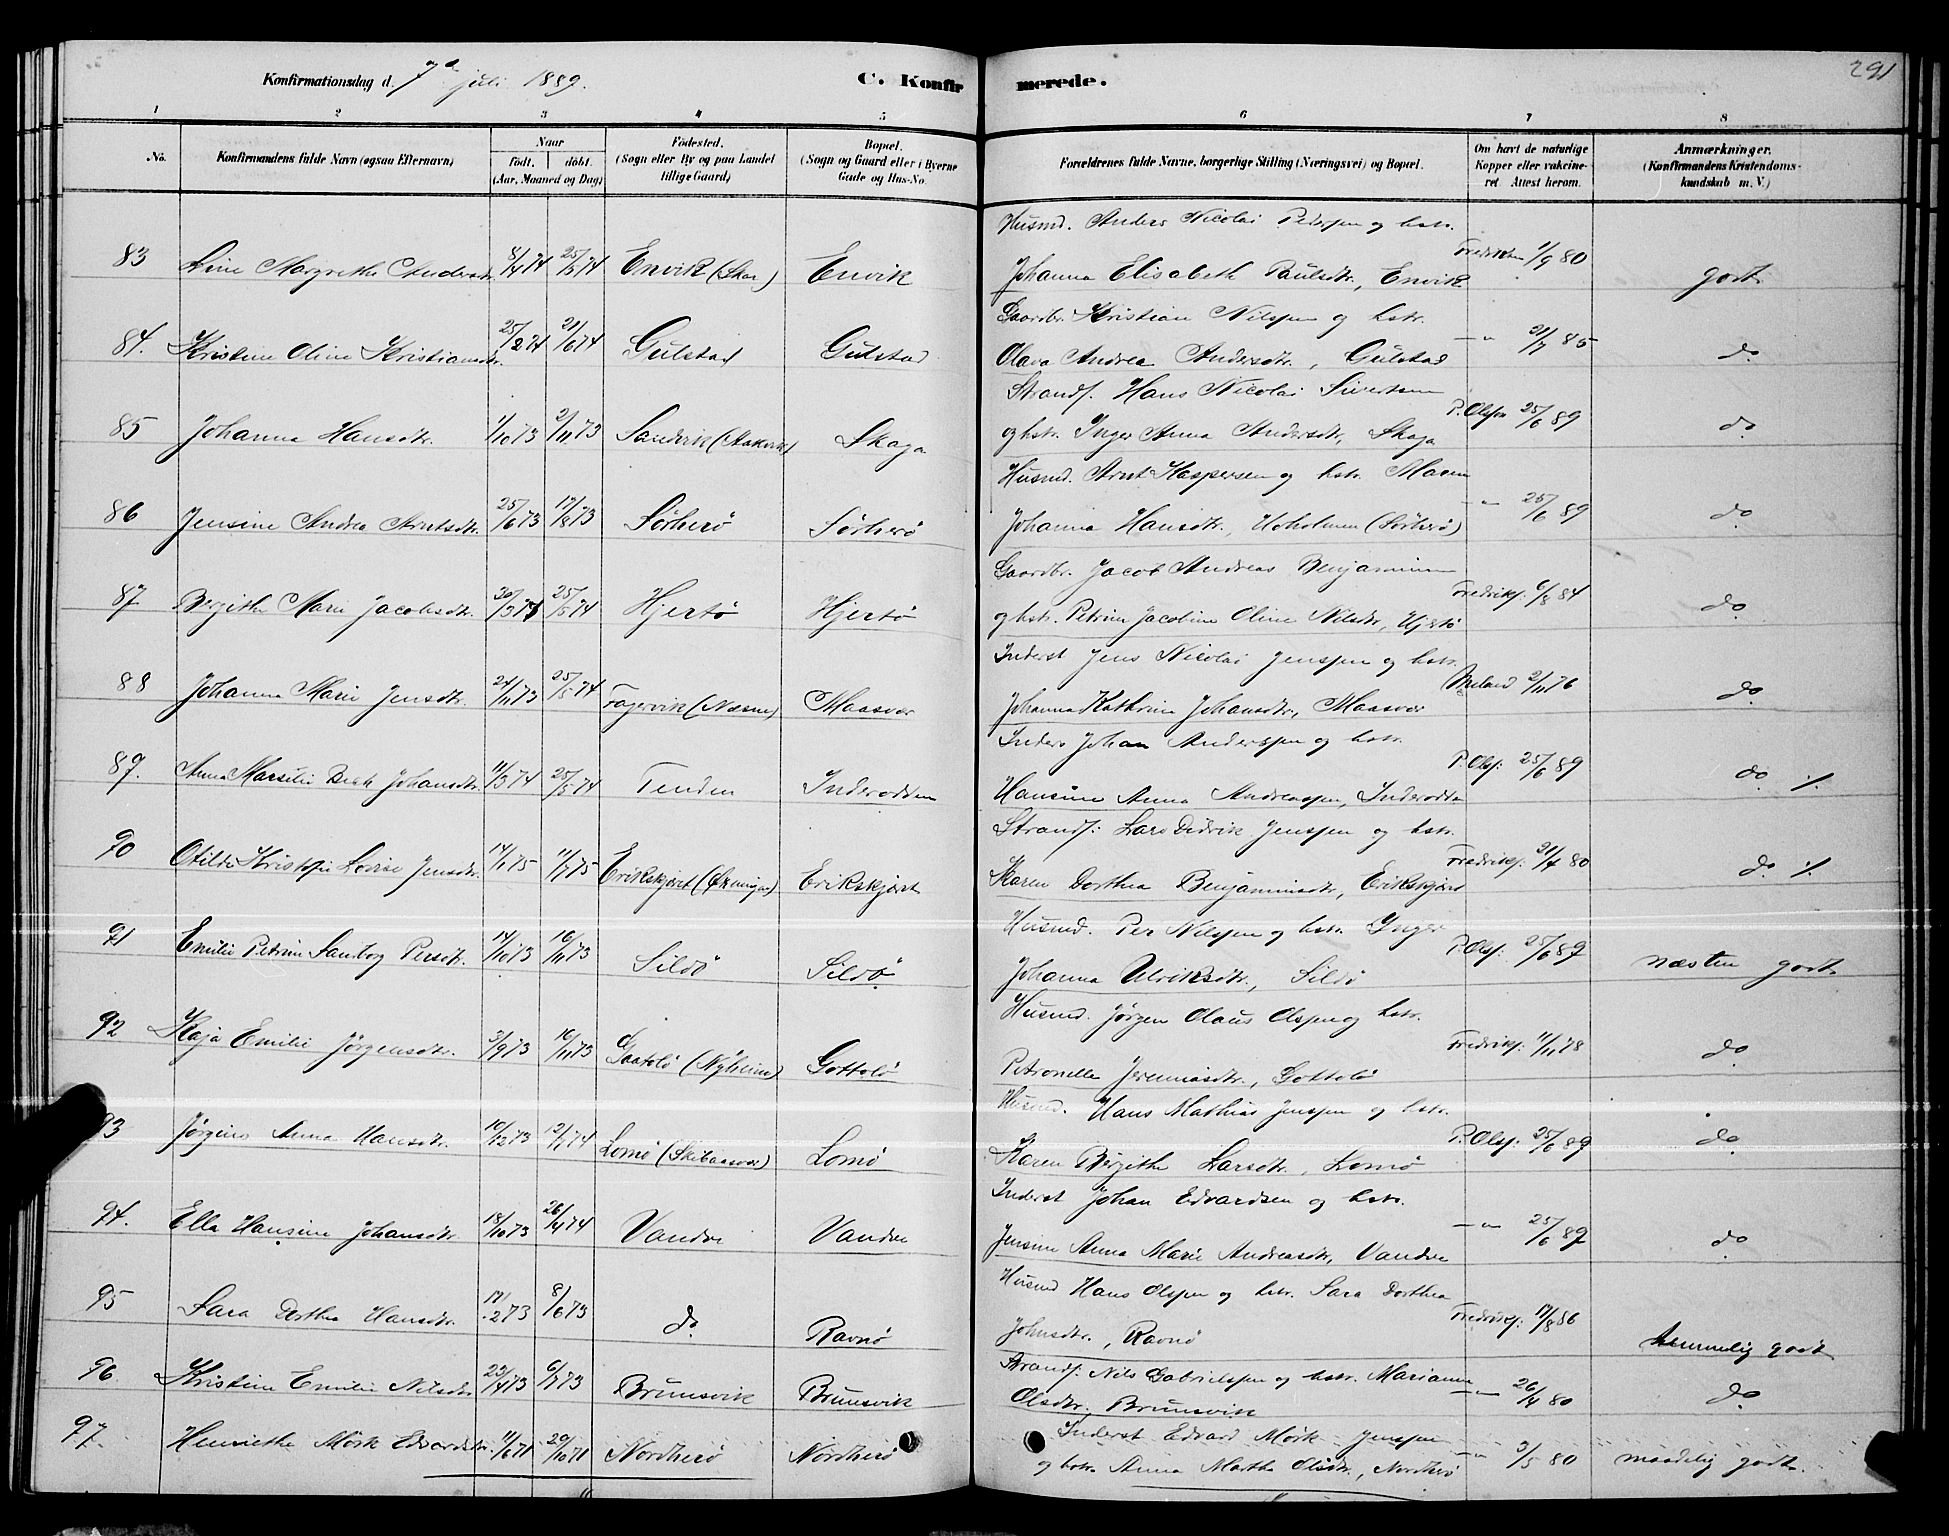 291
Konfirmationsdag d. 7de juli 1889.
C. Konfirmerede.
1 2 3 4 5 6 7 8
No.
Konfirmandens fulde Navn (ogsaa Efternavn)
Naar
født. døbt.
(Aar, Maaned og Dag)
Fødested.
(Sogn eller By og paa Landet
tillige Gaard)
Bopæl.
(Sogn og Gaard eller i Byerne
Gade og Hus-No.
Forældrenes fulde Navne, borgerlige Stilling (Næringsvei) og Bopæl.
Om havt de naturlige
Kopper eller vakcine-
ret Attest herom.
Anmærkninger.
(Konfirmandens Kristendoms-
kundskab m. V.)
Husmd. Anders Nicolai Pederssen og hstr.
83 Line Margrethe Andersdtr. 8/4 74 25/5 74 Envik (Skar) Envik Johanna Elisabeth Paulsdtr., Envik 1/9 80 godt
Gaardbr. Kristian Nilssen og hstr.
84. Kristine Oline Kristiansdtr. 25/2 74 21/6 74 Gulstad Gulstad Olava Andrea Andersdtr., Gulstad —"— 21/7 85 do
Strands. Hans Nicolai Sivertsen
85 Johanna Hansdtr. 1/10 73 2/11 73 Sandvik (Stokvik) Skaga og hstr. Inger Anna Andersdtr., Skaga P. Olsen 25/6 89 do
Husmd. Arnt Kaspersen og hstr. Maren
86 Jensine Andrea Arntsdtr. 25/6 73 17/8 73 Sørherø Sørherø Johanna Hansdtr., Hoholmen (Sørherø) —"— 25/6 89 do
Gaardbr. Jacob Andreas Benjaminsen
87 Bergithe Marie Jacobsdtr. 20/3 74 25/5 74 Hjertø Hjertø og hstr. Petrine Jacobine Oline Nilsdtr., Hjertø Fredriks: 6/8 84 do
Inderst Jens Nicolai Jenssen og hstr.
88 Johanna Marie Jensdtr. 24/11 73 25/5 74 Fagervik (Næsne) Maasvær Johanna Kathrine Johansdtr., Maasvær Meland 2/11 76 do
Inders Johan Anderssen og hstr.
89. Anna Marsilie Johansdtr. 11/3 74 25/5 74 Tenden Inderodden Hansine Anna Andreassen, Inderodden P. Ols: 25/6 89 do ./.
Strands: Lars Didrik Jenssen og hstr.
90 Otilde Kristofie Lovise Jensdtr. 14/1 75 11/7 75 Erikskjæret Erikskjæret Karen Dorthea Benjaminsdtr., Erikskjæret Fredriks: 21/4 80 do ./.
Husmd. Per Nilssen og hstr. Inger
91 Emilie Petrine Sanborg Persdtr. 14/10 73 16/11 73 Sildø Sildø Johanna Ulriksdtr., Sildø P. Ols: 25/6 89 næsten godt
Husmd. Jørgen Olaus Olssen og hstr.
92 Kaja Emilie Jørgensdtr. 3/9 73 16/11 73 Gaatolø (Nyheim) Gottolø Petronelle Jeremiasdtr., Gottolø Fredriks: 17/11 78 do
Husmd. Hans Mathias Jenssen og hstr.
93 Jørgine Anna Hansdtr. 10/12 73 12/7 74 Lomø (Skibaasvær) Lomø Karen Bergithe Larsdtr., Lomø P. Ols: 25/6 89 do
Inderst Johan Edvardsen og hstr.
94. Ella Hansine Johansdtr. 18/10 73 26/4 74 Vandve Vandve Jensine Anna Marie Andreasdtr., Vandve —"— 25/6 89 do
Husmd Hans Olssen og hstr. Sara Dorthea
95 Sara Dorthea Hansdtr. 17/2 73 8/6 73 do Ravnø Johnsdtr., Ravnø Fredriks: 17/8 86 temmelig godt
Strands: Nils Gabrielssen og hstr. Marianne
96 Kristine Emilie Nilsdtr 23/4 73 6/7 73 Brunsvik Brunsvik Olsdtr. Brunsvik —"— 26/4 80 do
Inderst Edvard Mørk Jenssen
97. Henriethe Mørk Edvardsdtr. 11/6 71 29/10 71 Nordherø Nordherø og hstr. Anna Martha Olsdtr., Nordherø —"— 3/5 80 maadelig godt.